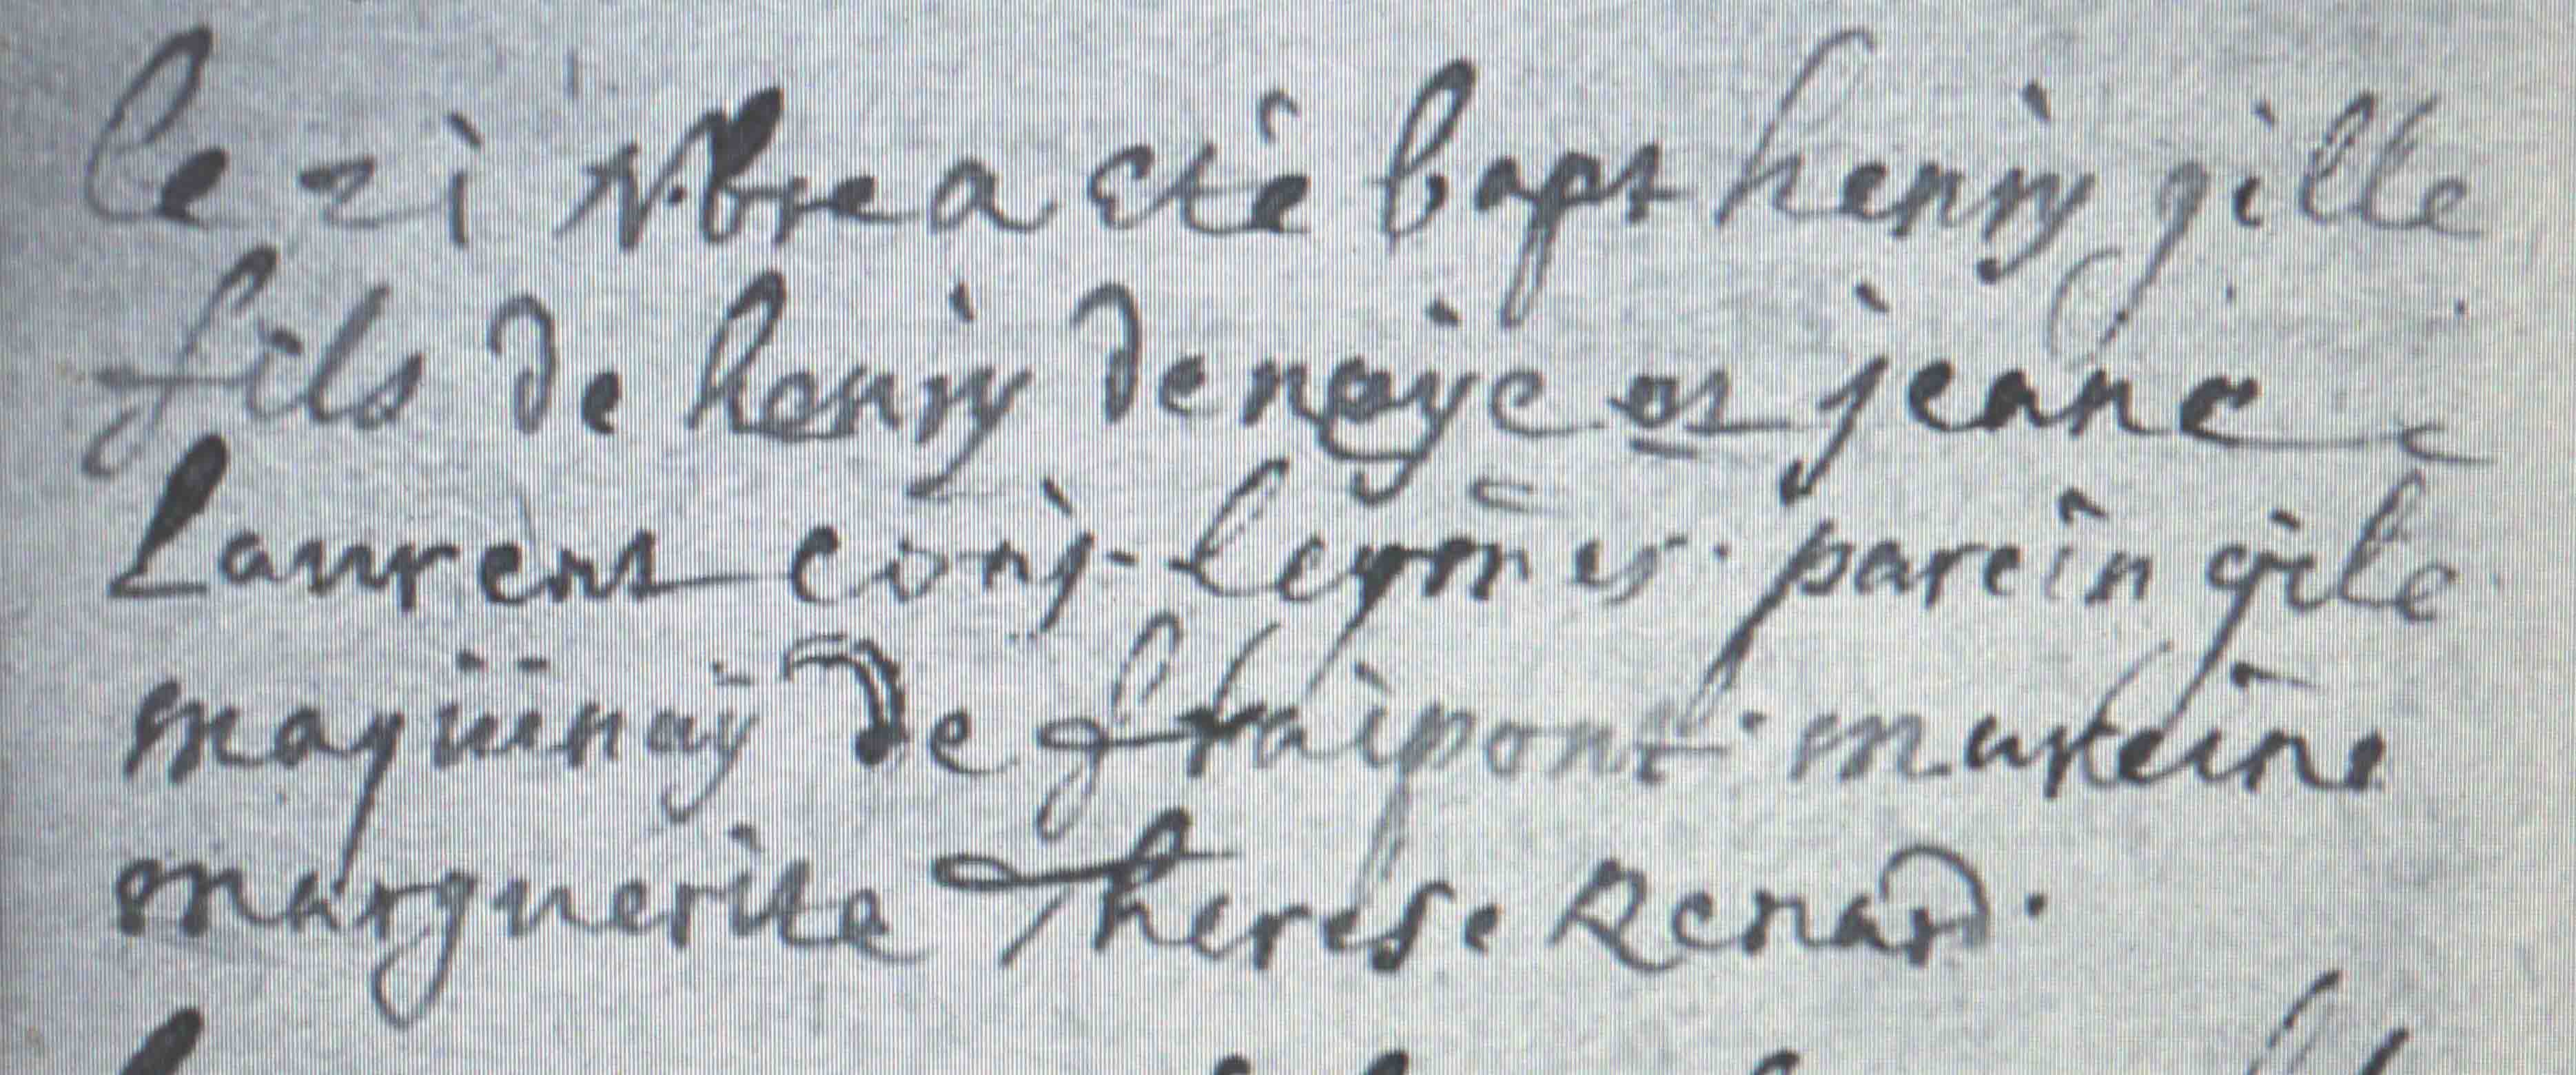 le 21 Nbre a eté bapt henrÿ gille
fils de henrÿ denoÿe et jeane
Laurent conj. legm̄es. parein gile
maquinaÿ de fraipont. mareine
marguerite Therese Renard.